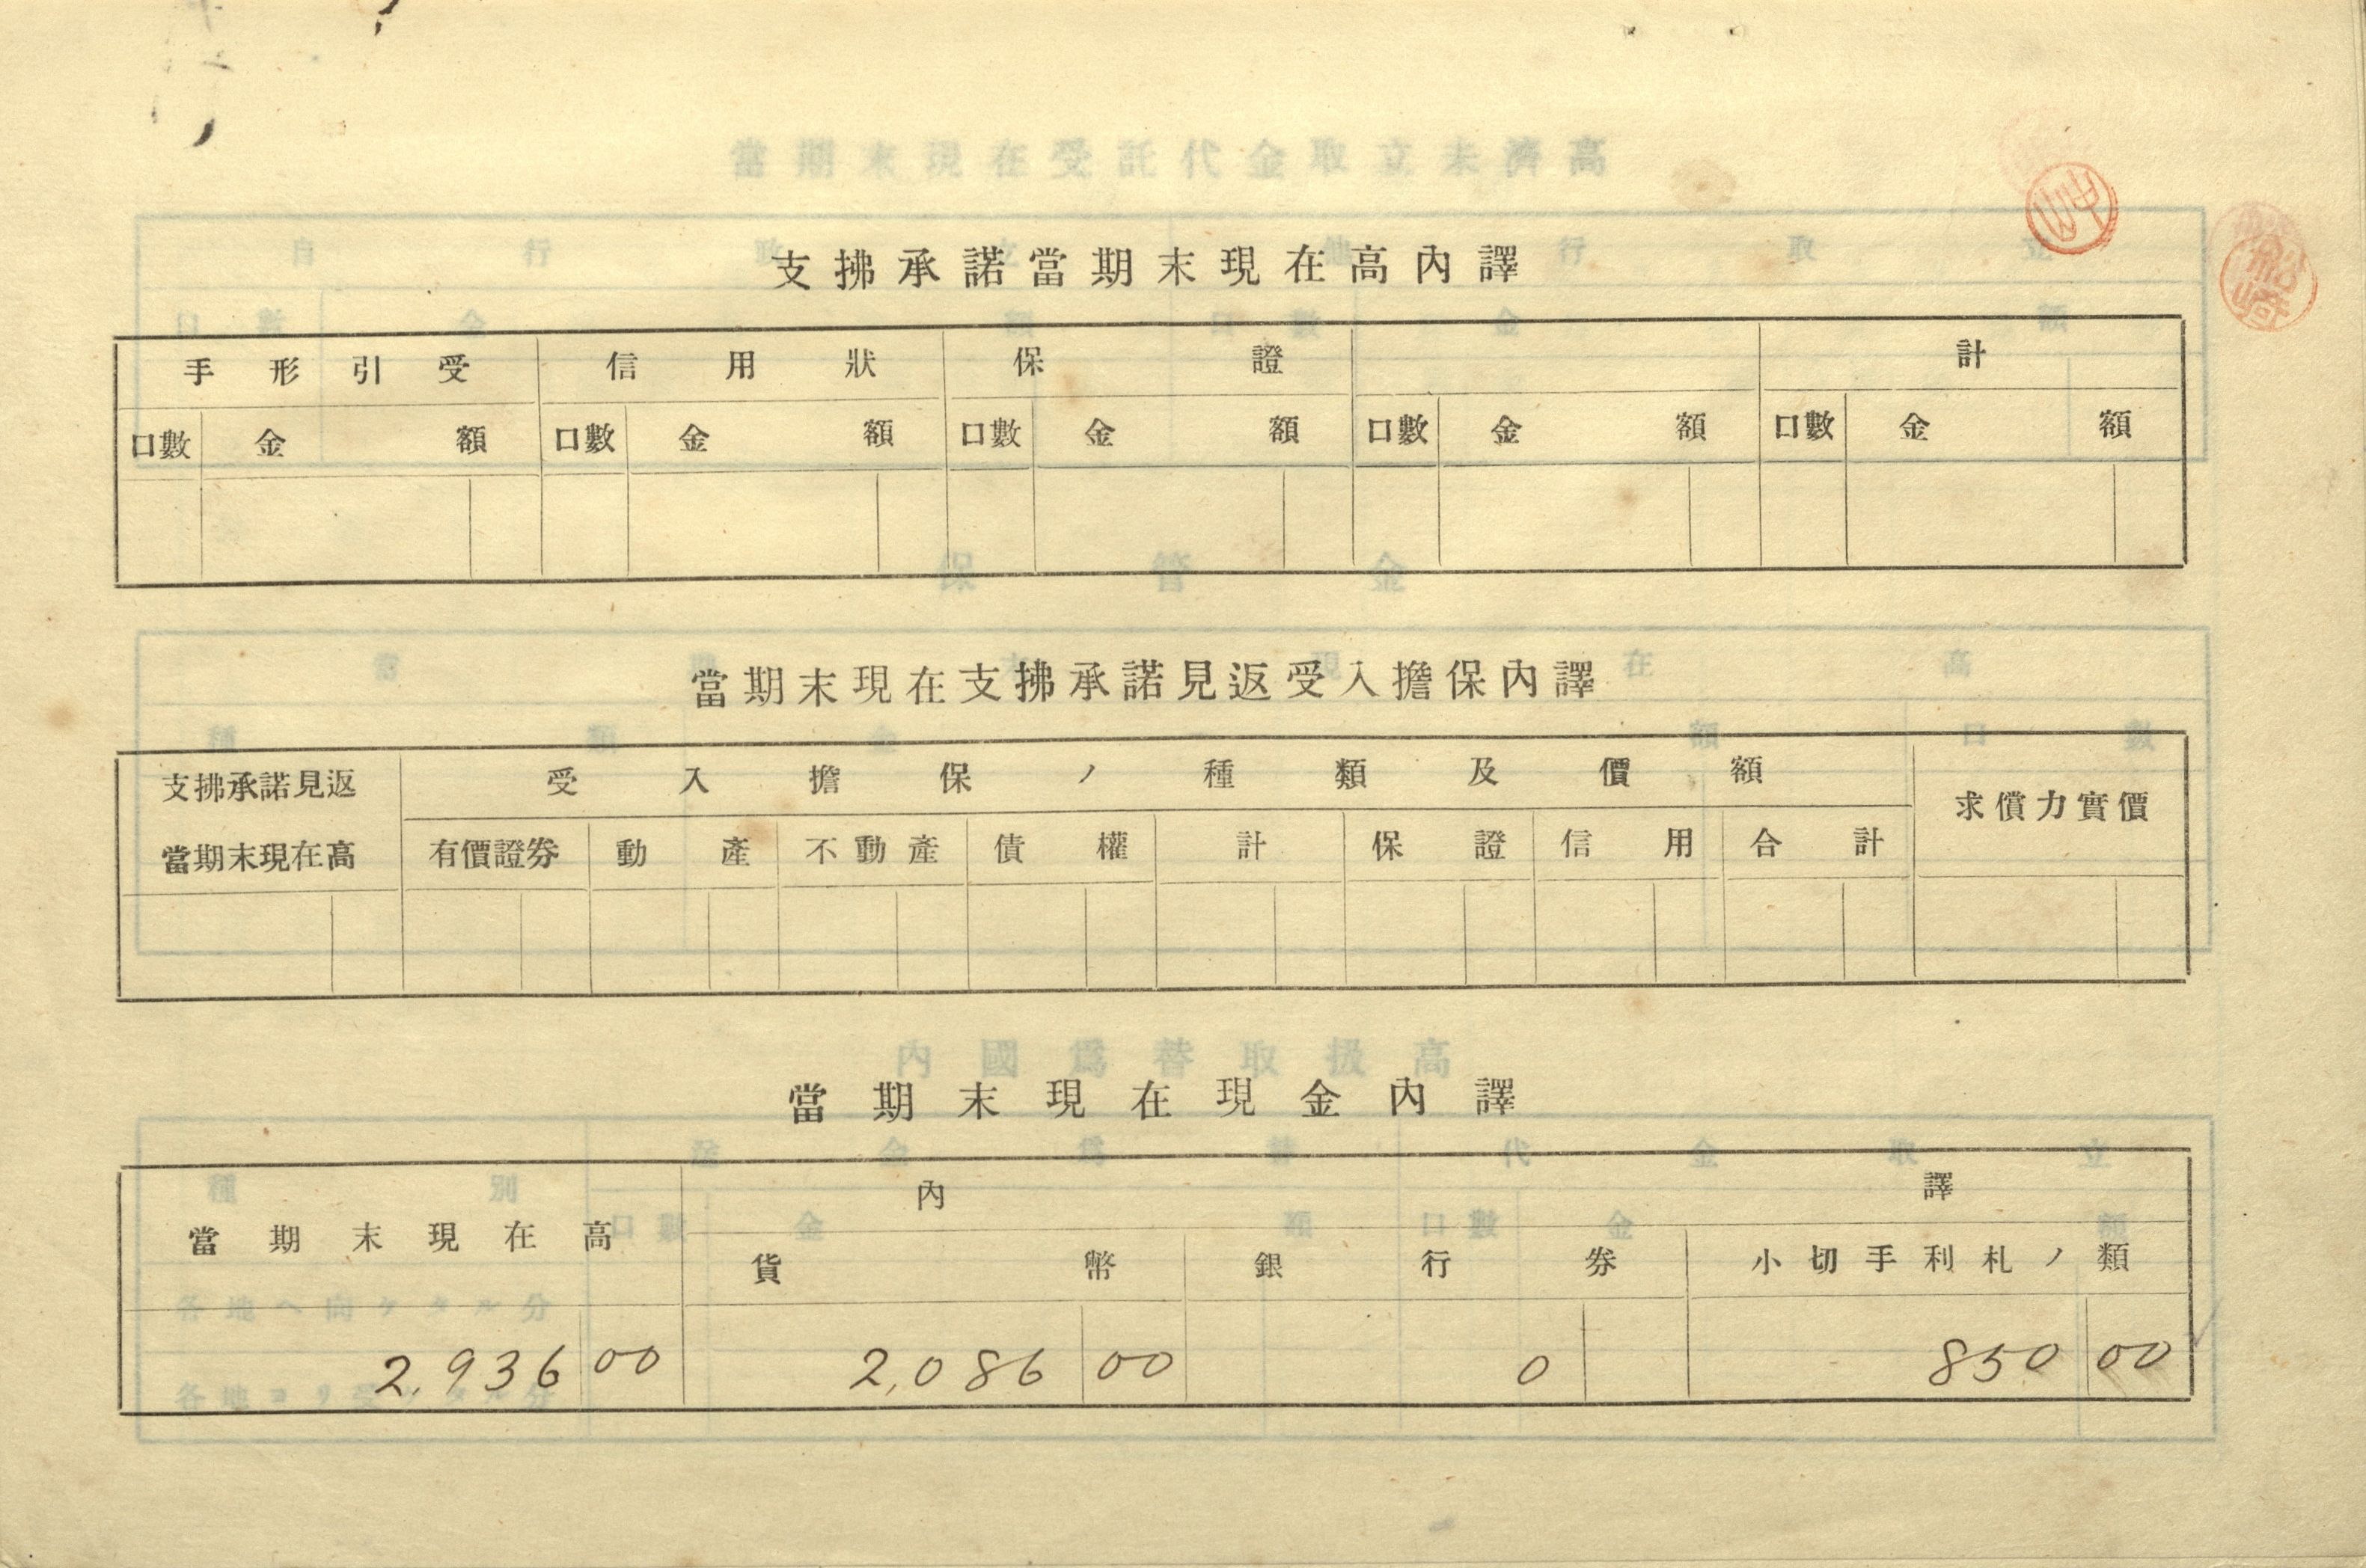 支拂承諾當期末現在高內譯
手形引受 信用狀 保證 計
口數 金額 口數 金額 口數 金額 口數 金額 口數 金額
當期末現在支拂承諾見返受入擔保內譯
支拂承諾見返 受入擔保ノ種類及價額 求償力實價
當期末現在高 有價證券 動產 不動產 債權 計 保證 信用 合計
當期末現在現金內譯
內譯
當期末現在高 貨幣 銀行券 小切手利札ノ類
2,936 00 2,086 00 0 850 00
當期末現在受託代金取立未濟高
保管金
內國爲替取扱高
船崎